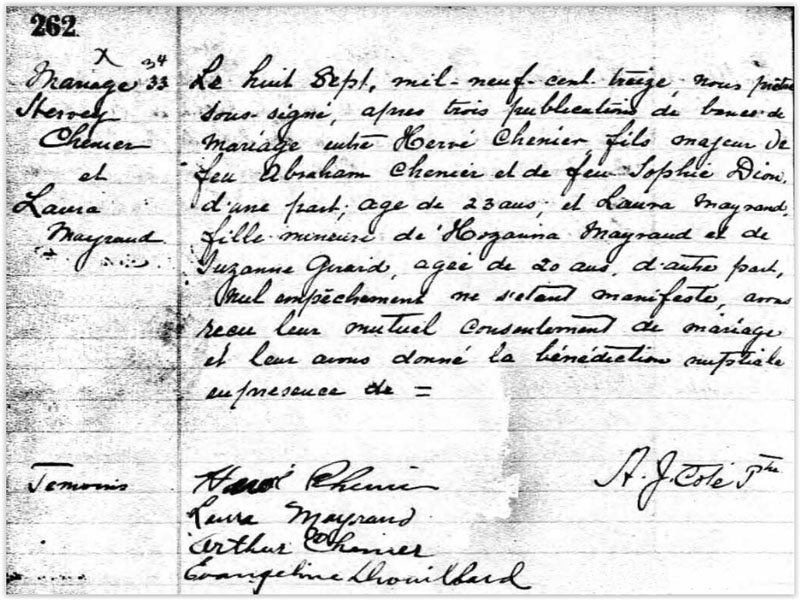 262
X 34
Mariage 33
Hervey
Chenier
et
Laura
Mayrand
Le huit Sept, mil-neuf-cent treize, nous prêtre
sous-signé, apres trois publications de bancs de
mariage entre Hervé Chenier, fils majeur de
feu Abraham Chenier et de feu Sophie Dion,
d'une part, age de 23 ans, et Laura Mayrand,
fille mineure de Hozanna Mayrand et de
Suzanne Girard, agée de 20 ans, d'autre part,
Nul empêchement ne s'etant manifeste, avons
recu leur mutuel consentement de mariage
et leur avons donné la bénédiction nuptiale
en presence de =
Temoins
Hervé Chenier
Laura Mayrand
Arthur Chenier
Evangeline Drouillard
A. J. Coté Ptre